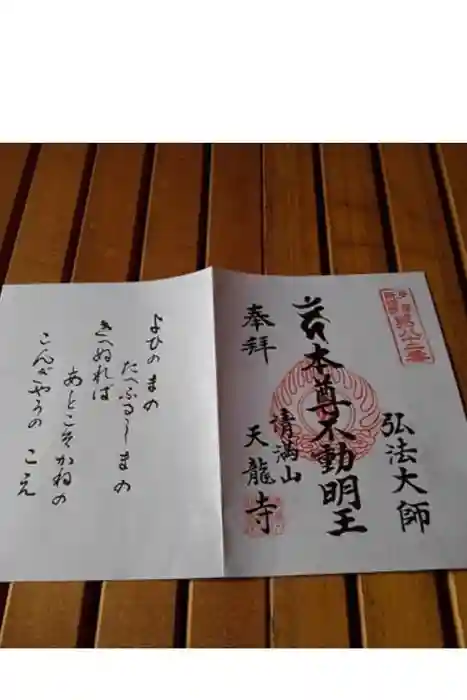 第八十二番
弘法大師
本尊不動明王
清満山
奉拝
天龍寺
よひのまの
たへふるしまの
きへぬれは
あとこそかねの
こんぎやうの こえ